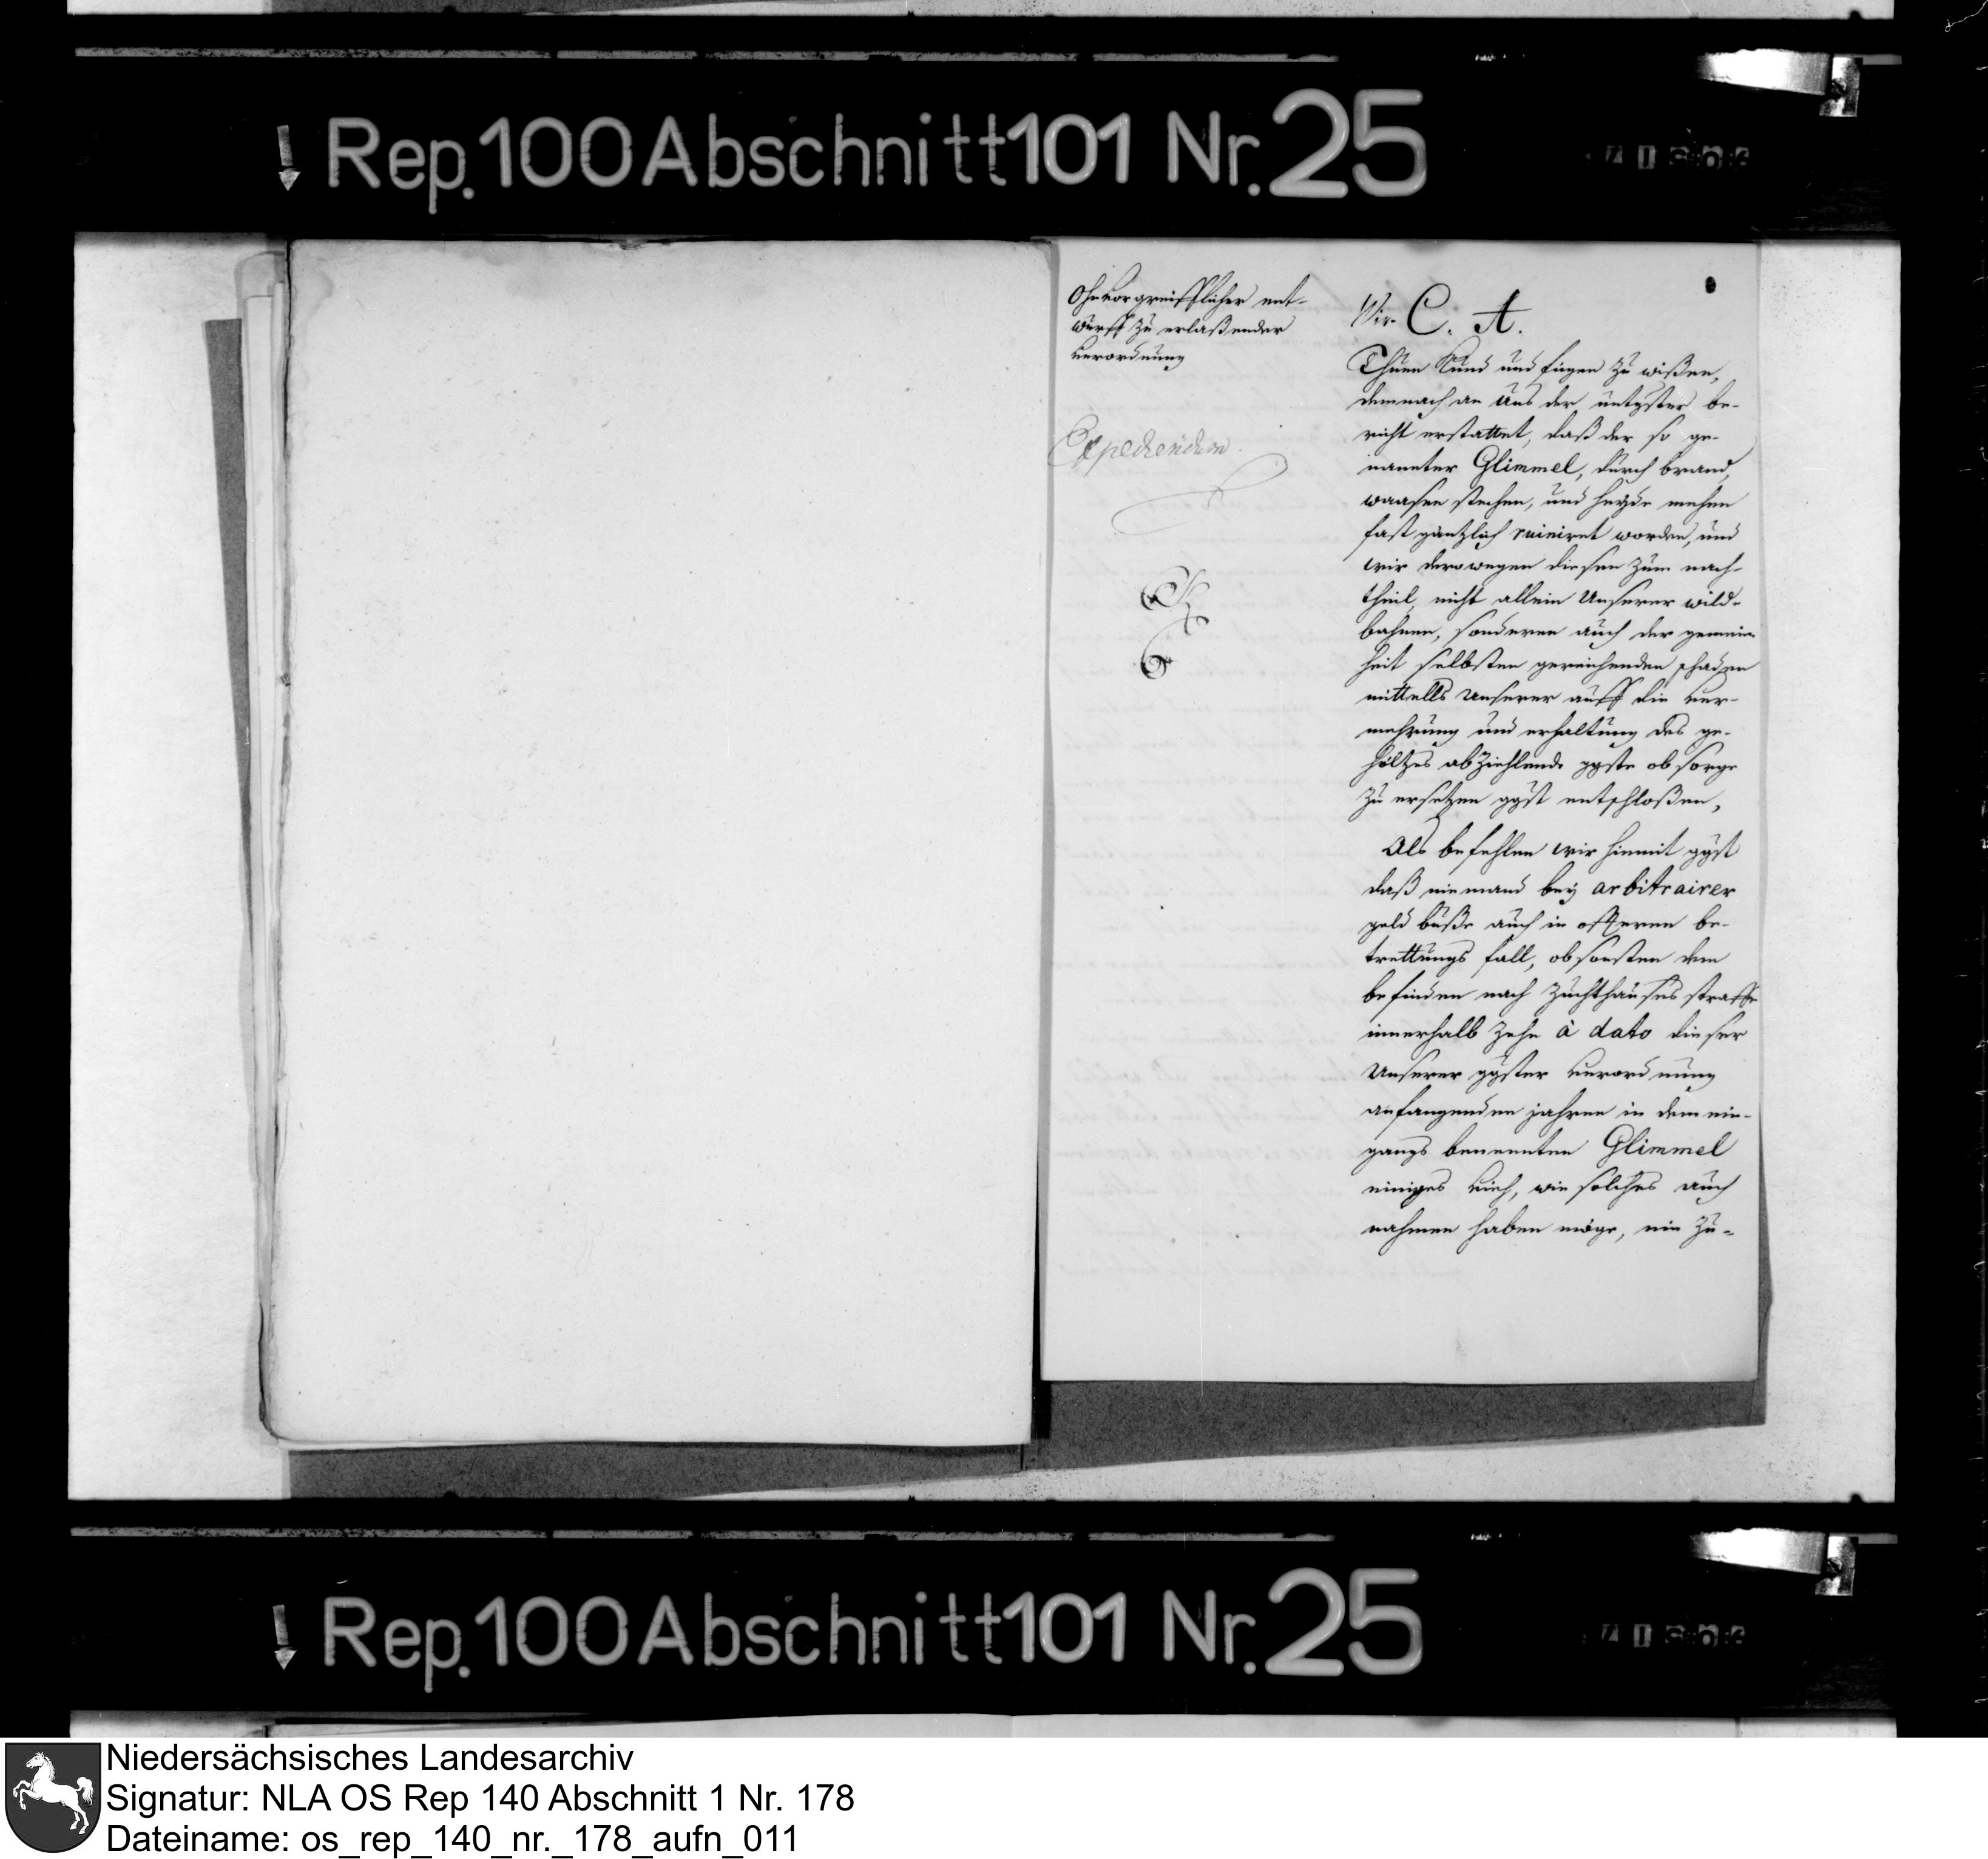 Rep. 100 Abschnitt 101 Nr. 25
Ohnvorgreifflicher ent-
wurff zu erlaßender
verordnung
Expediendum
Wir C. A.
Thuen Kund und fügen zu wißen,
demnach an Uns der untgster be-
richt erstattet, daß der so ge-
nannter Glimmel, durch brand,
waasen stechen, und heyde mehen
fast gäntzlich ruiniret worden, und
wir derowegen diesen zum nach-
theil, nicht allein Unserer wild-
bahnen, sonderen auch der gemein
heit selbsten gereichenden schaden
mittells Unserer auff die ver-
mehrung und erhaltung des ge-
höltzes abziehlende ggste obsorge
zu ersetzen ggst entschloßen,
Als befehlen wir hiemit ggst
daß niemand bey arbitrairer
geld buße auch in öffteren be-
trettungs fall, obsonsten dem
befinden nach Zuchthauses straffe
innerhalb Zehn à dato dieser
Unserer ggster verordnung
anfangenden jahren in dem ein-
gangs benennten Glimmel
einiges vieh, wie solches auch
nahmen haben möge, ein zu-
Rep. 100 Abschnitt 101 Nr. 25
Niedersächsisches Landesarchiv
Signatur: NLA OS Rep 140 Abschnitt 1 Nr. 178
Dateiname: os_rep_140_nr._178_aufn_011